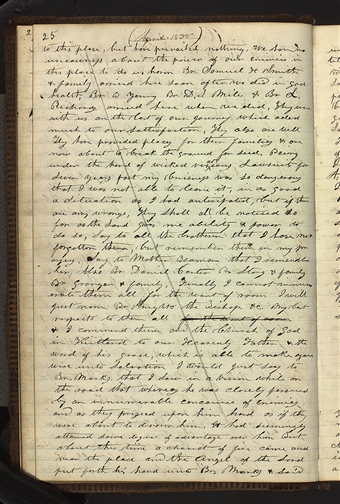 25 (April 1838)
to this place, but have prevailed nothing. We have no
uneasiness about the power of our enemies in
this place to do us harm Br Samuel H Smith
& family arrived here soon after we did in good
health. Br B Young, Br D. S. Miles & Br L.
Richards arrived here when we did, They were
with us on the last of our journey which aded
much to our sattisfaction, They also are well
They have provided places for their families & are
now about to break the ground for seed, Being
under the hand of wicked vexatious Lawsuits for
seven years past my buisiness was so dangerous
that I was not able to leave it, in as good
a situation as I had anticipated, but if there
are any wrongs, They shall all be noticed so
far as the Lord gives me ability & power to
do so, Say to all the brethren that I have not
forgotten them, but remember them in my pr
ayers, Say to Mother Beaman that I remember
her, Also Br Daniel Carter Br Strong & family
Br Granger & family, Finally I cannot enume
rate them all for the want of room I will
just name Br Knights the Bishop &c. My best
respects to them all for the want of room
& I commend them and the Church of God
in Kirtland to our Heavenly Father & the
word of his grace, which is able to make you
wise unto Salvation I would just say to
Br. Marks, that I saw in a vision while on
the road that whereas he was closely persued
by an innumerable concource of enimies
and as they pressed upon him hard as if they
were about to devour him, & had seemingly
attained some degree of advantage over him But
about this time a chariot of fire came and
near the place and the Angel of the Lord
put forth his hand unto Br. Marks & said